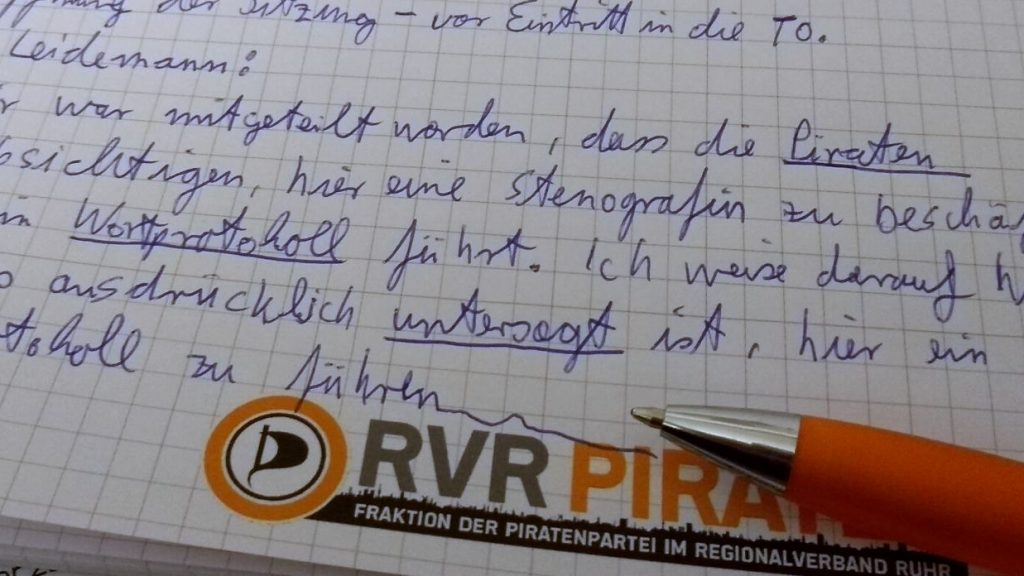 der Sitzung - vor Eintritt in die TO.
Leidemann:
war mitgeteilt worden, dass die Piraten
bsichtigen, hier eine Stenografin zu beschäf
in Wortprotokoll führt. Ich weise darauf h
o ausdrücklich untersagt ist, hier ein
tokoll zu führen
RVR PIRATE
FRAKTION DER PIRATENPARTEI IM REGIONALVERBAND RUHR